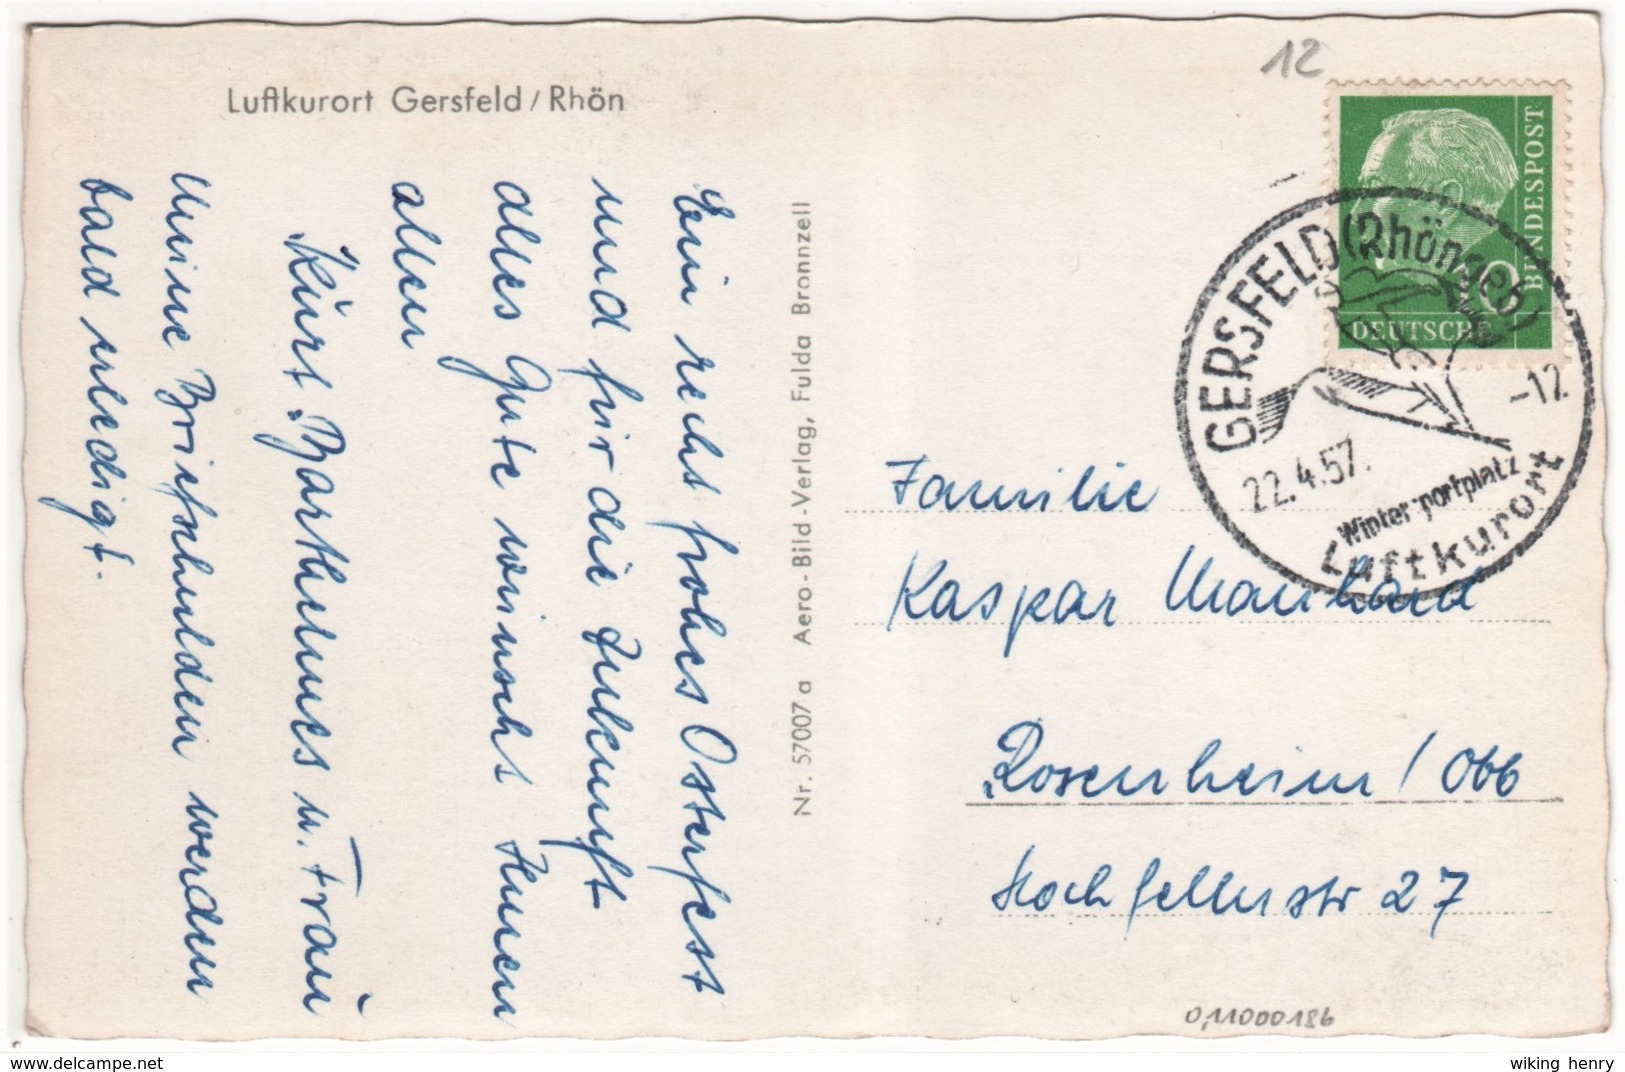 Luftkurort Gersfeld / Rhön
12
DEUTSCHE
BUNDESPOST
10
GERSFELD (Rhöngeb)
22.4.57.
-12
Wintersportplatz
Luftkurort
Ein recht frohes Osterfest
und für die Zukunft
alles Gute wünscht Ihnen
allen
Kurt Barthelmes u. Frau
Meine Briefschulden werden
bald erledigt.
Nr. 57007 a Aero-Bild-Verlag, Fulda Bronnzell
Familie
Kaspar
Rosenheim / Obb
Hochfellnstr 27
0,11000186
wiking henry